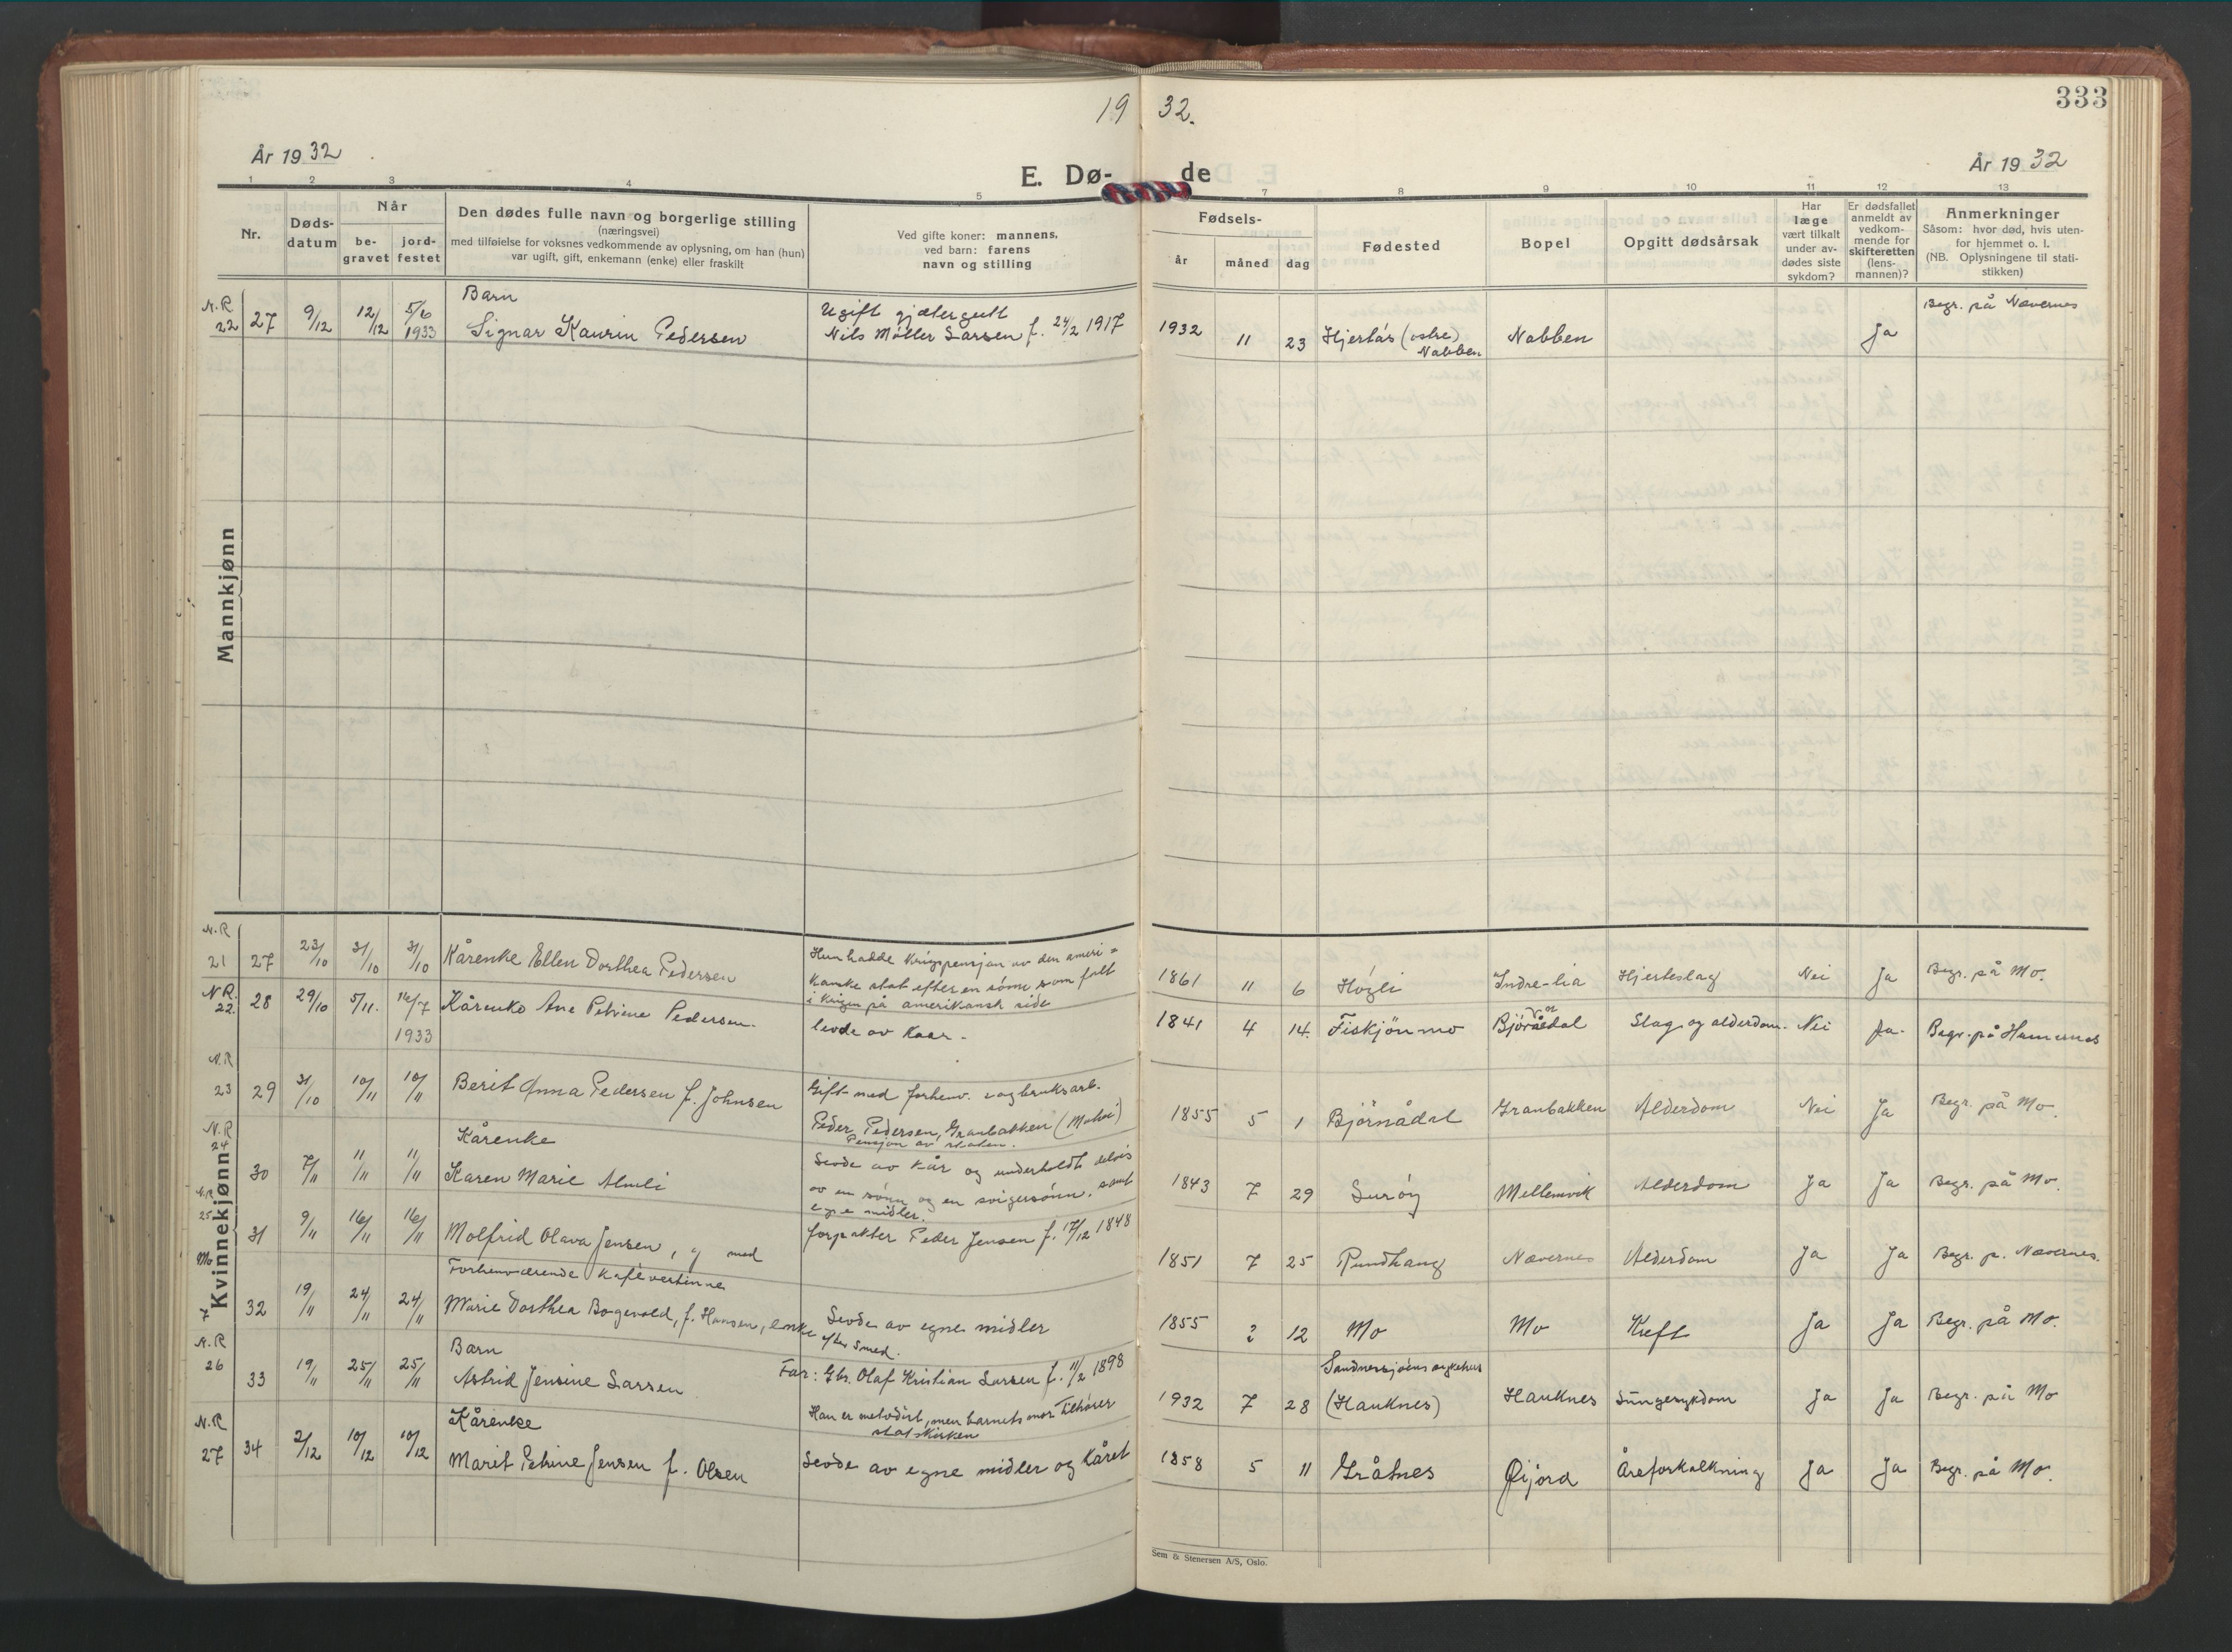 19 32.
333
År 1932
E. Døde
År 1932
1 2 3 4 5 7 8 9 10 11 12 13
Nr.
Døds-
datum
Når
be-
gravet
jord-
festet
Den dødes fulle navn og borgerlige stilling
(næringsvei)
med tilføielse for voksnes vedkommende av oplysning, om han (hun)
var ugift, gift, enkemann (enke) eller fraskilt
Ved gifte koner: mannens,
ved barn: farens
navn og stilling
Fødsels-
år måned dag
Fødested
Bopel
Opgitt dødsårsak
Har
læge
vært tilkalt
under av-
dødes siste
sykdom?
Er dødsfallet
anmeldt av
vedkom-
mende for
skifteretten
(lens-
mannen)?
Anmerkninger
Såsom: hvor død, hvis uten-
for hjemmet o. l.
(NB. Oplysningene til stati-
stikken)
Mannkjønn
N.R
22 27 9/12 12/12 5/6 1933
Barn
Signar Kaurin Pedersen
Ugift gjætergutt
Nils Møller Larsen f. 24/2 1917
1932 11 23 Hjertås (østre) Nabben
Nabben Ja
Begr. på Nævernes
Kvinnekjønn
N.R
21 27 23/10 31/10 31/10 Kårenke Ellen Dorthea Pedersen
Hun hadde Krigspensjon av den ameri=
kanske stat efter en sønn som falt
i krigen på amerikansk side
1861 11 6 Høgli Indre-lia Hjerteslag Nei Ja Begr. på Mo.
N.R.
22. 28 29/10 5/11. 16/7 1933 Kårenke Ane Petrine Pedersen.
levde av Kaar.
1841 4 14. Fiskjönmo Slag og alderdom. Nei Ja. Begr. på Hemnes
N.R
23 29 31/10 10/11 10/11 Berit Anna Pedersen f. Johnsen
Gift med forhenv. sagbruksarb.
Peder Pedersen, Granbakken
Pensjon av staten.
1855 5 1 Björnådal Granbakken Alderdom Nei Ja Begr. på Mo.
N.R
24
30 7/11 11/11 11/11
Kårenke
Karen Marie Almli
Levde av kår og underholdt delvis
av en sønn og en svigersønn, samt
egne midler.
1843 7 29 Surøy Mellemvik Alderdom Ja Ja Begr. på Mo.
N.R
25
31 9/11 16/11 16/11 Molfrid Olava Jensen, g med
forpakter Peder Jensen f. 17/12 1848
1851 7 25 Rundhaug Nævernes Alderdom Ja Ja Begr. p. Nævernes.
Mo
7 32 19/11 24/11 24/11
Forhenværende kafévertinne
Marie Dorthea Bogevold, f. Hansen, enke
efter smed.
Levde av egne midler
1855 2 12 Mo Mo Kreft Ja Ja Begr. på Mo.
N.R
26 33 19/11 25/11 25/11
Barn
Astrid Jensine Larsen
Far: Gbr. Olaf Kristian Larsen f. 11/2 1898
Han er metodist, men barnets mor tilhører
statskirken
1932 7 28 Sandnessjøens sykehus
(Hauknes) Hauknes Lungesykdom Ja Ja Begr. på Mo
N.R
27 34 2/12 10/12 10/12
Kårenke
Marit Petrine Jensen f. Olsen
Levde av egne midler og kåret
1858 5 11 Gråtnes Øijord Åreforkalkning Ja Ja Begr. på Mo.
Sem & Stenersen A/S, Oslo.